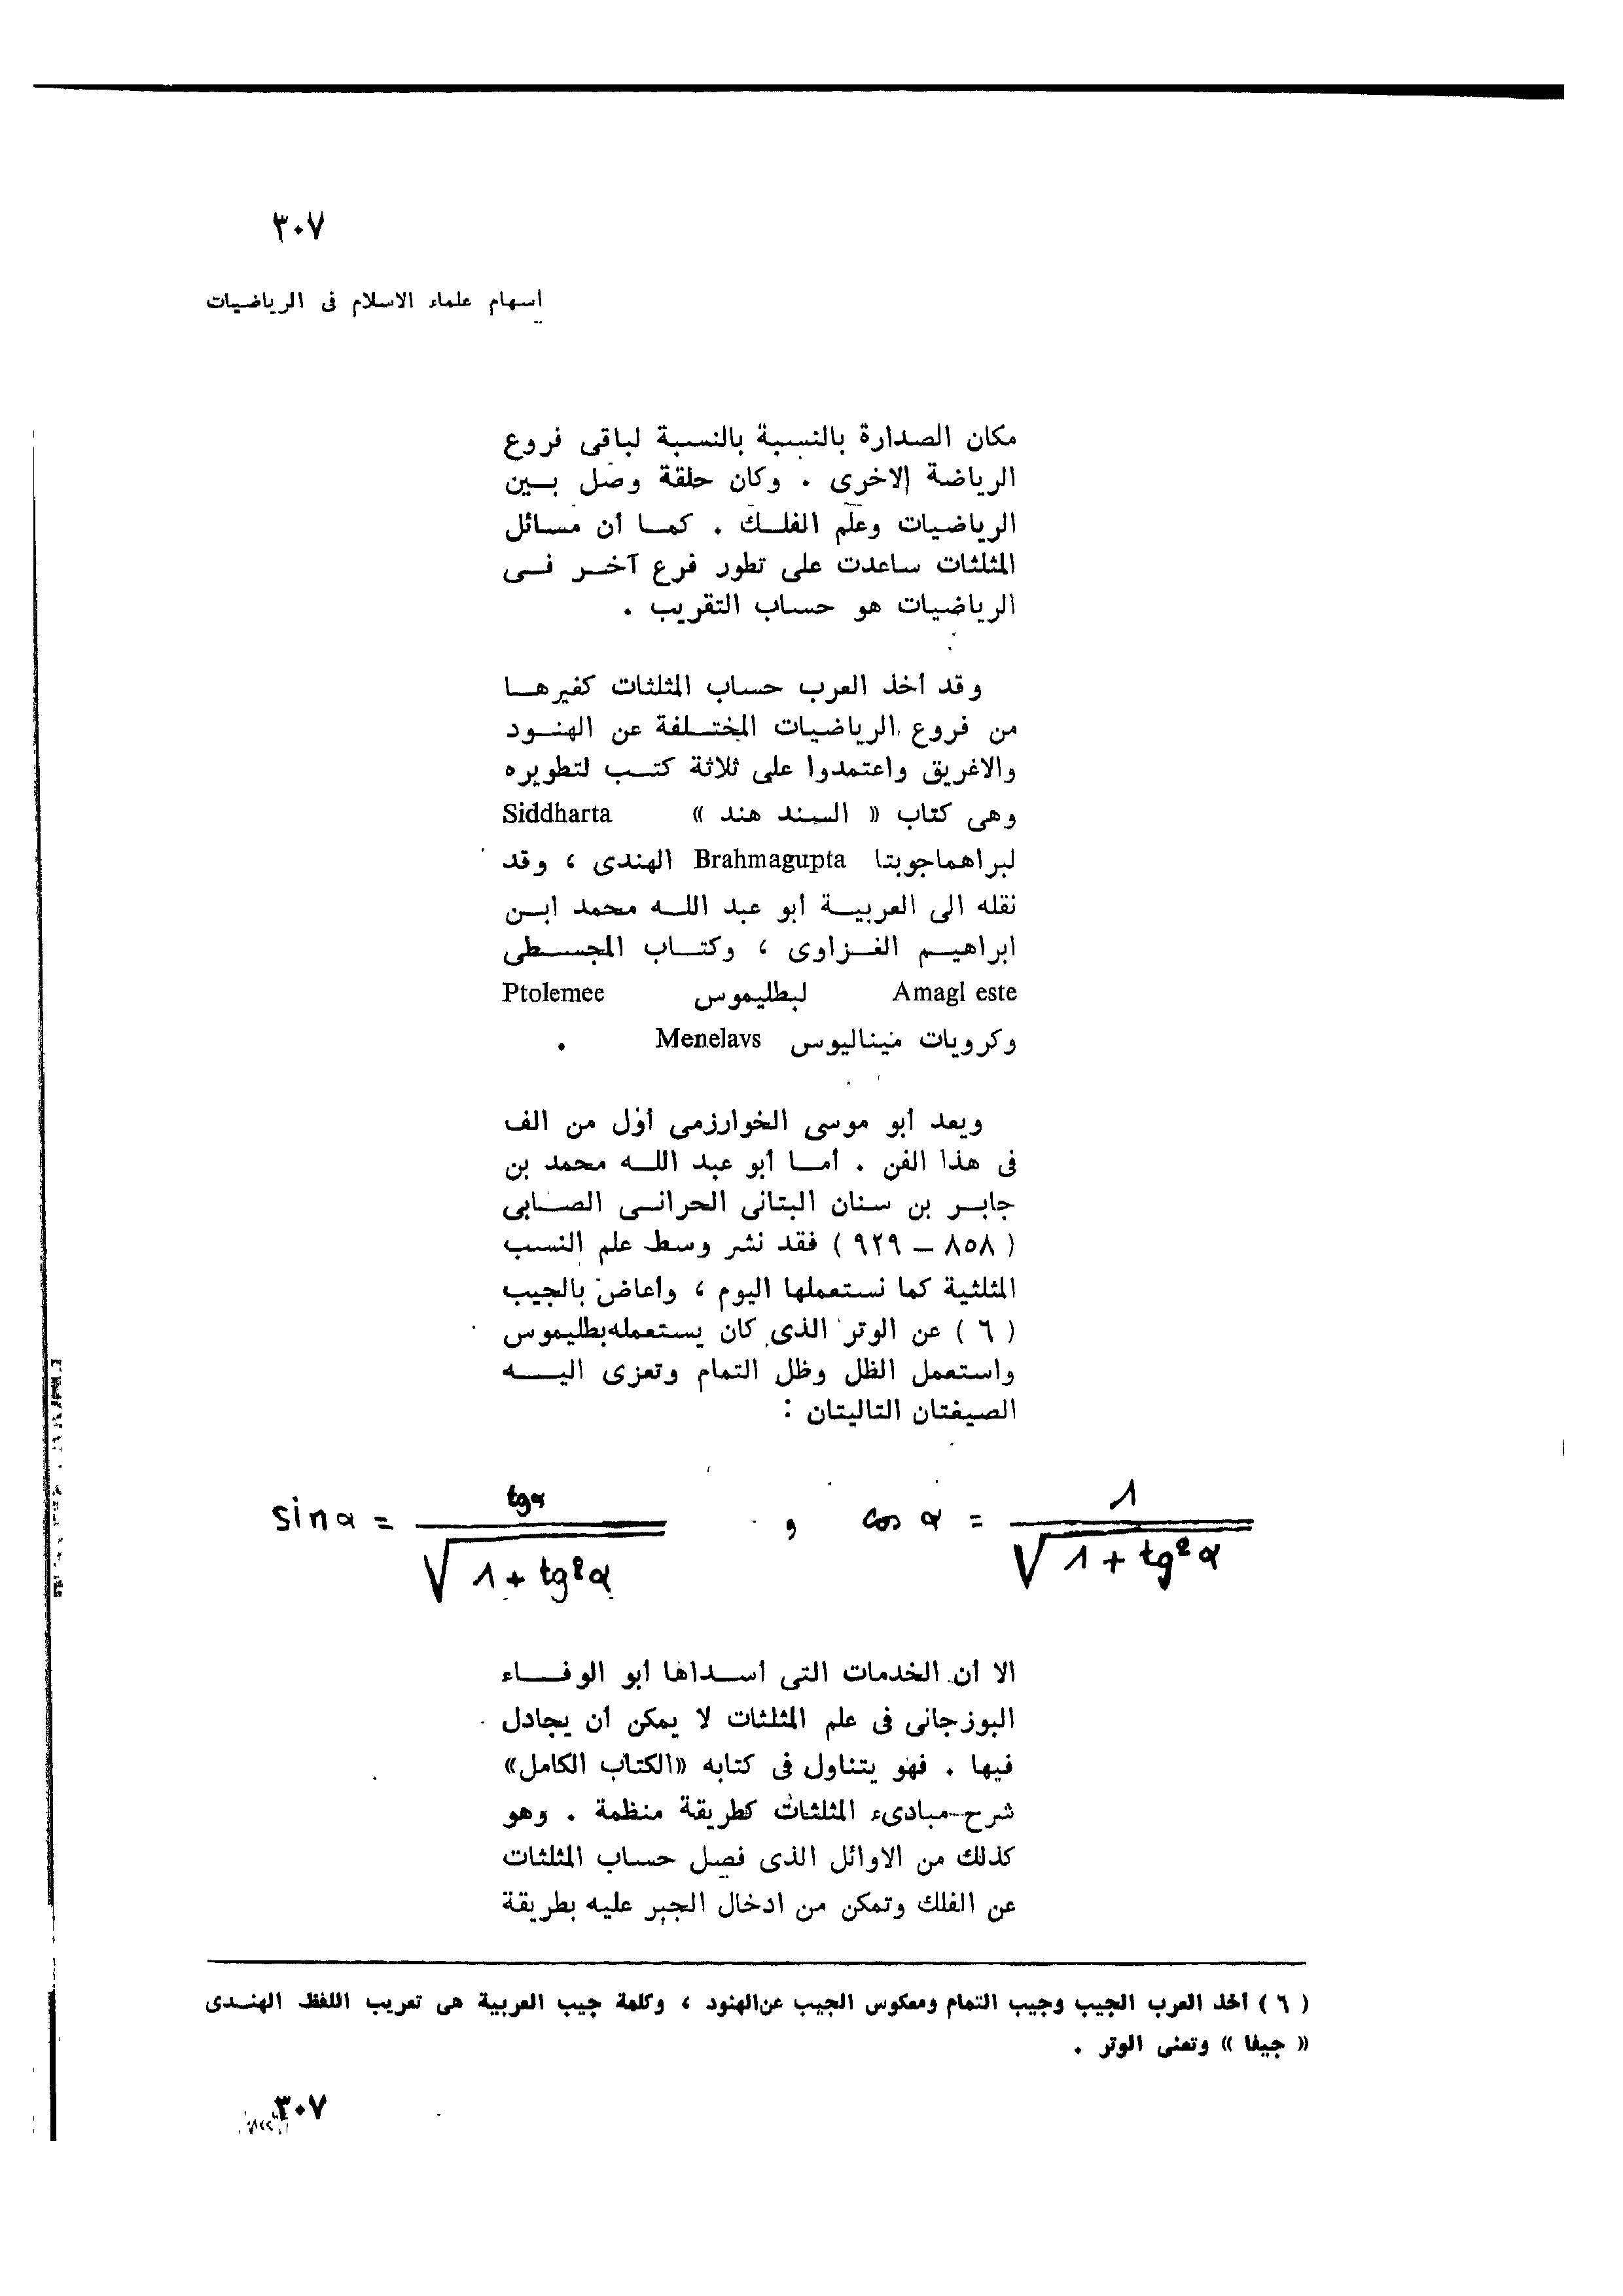 ٣٠٧
إسهام علماء الاسلام فى الرياضيات
مكان الصدارة بالنسبة بالنسبة لباقى فروع
الرياضة الاخرى . وكان حلقة وصل بــين
الرياضيات وعلم الفلــك . كمــا أن مسائل
المثلثات ساعدت على تطور فرع آخــر فــى
الرياضيات هو حساب التقريب .
وقد أخذ العرب حساب المثلثات كغيرهــا
من فروع الرياضيات المختــلفة عن الهنــود
والاغريق واعتمدوا على ثلاثة كتــب لتطويره
وهى كتاب « السند هند » Siddharta
لبراهماجوبتا Brahmagupta الهندى ، وقد
نقله الى العربيــة أبو عبد اللــه محمد ابــن
ابراهيــم الفــزاوى ، وكتــاب المجســطى
Amagl este لبطليموس Ptolemee
وكرويات مينالیوس Menelavs .
ويعد أبو موسى الخوارزمى أول من الف
فى هذا الفن . أمــا أبو عبد اللــه محمد بن
جابــر بن سنان البتانى الحرانــى الصــابى
( ٨٥٨ – ٩٢٩ ) فقد نشر وسط علم النسب
المثلثية كما نستعملها اليوم ، وأعاض بالجيب
( ٦ ) عن الوتر الذى كان يستعمله بطليموس
واستعمل الظل وظل التمام وتعزى اليــه
الصيغتان التاليتان :
sin α = tg α / √(1 + tg² α) و cos α = 1 / √(1 + tg² α)
الا أن الخدمات التى أســداها أبو الوفــاء
البوزجانى فى علم المثلثات لا يمكن أن يجادل
فيها . فهو يتناول فى كتابه «الكتاب الكامل»
شرح مبادىء المثلثات كطريقة منظمة . وهو
كذلك من الاوائل الذى فصل حساب المثلثات
عن الفلك وتمكن من ادخال الجبر عليه بطريقة
( ٦ ) أخذ العرب الجيب وجيب التمام ومعكوس الجيب عن الهنود ، وكلمة جيب العربية هى تعريب اللفظ الهنــدى
« جيفا » وتعنى الوتر .
٣٠٧